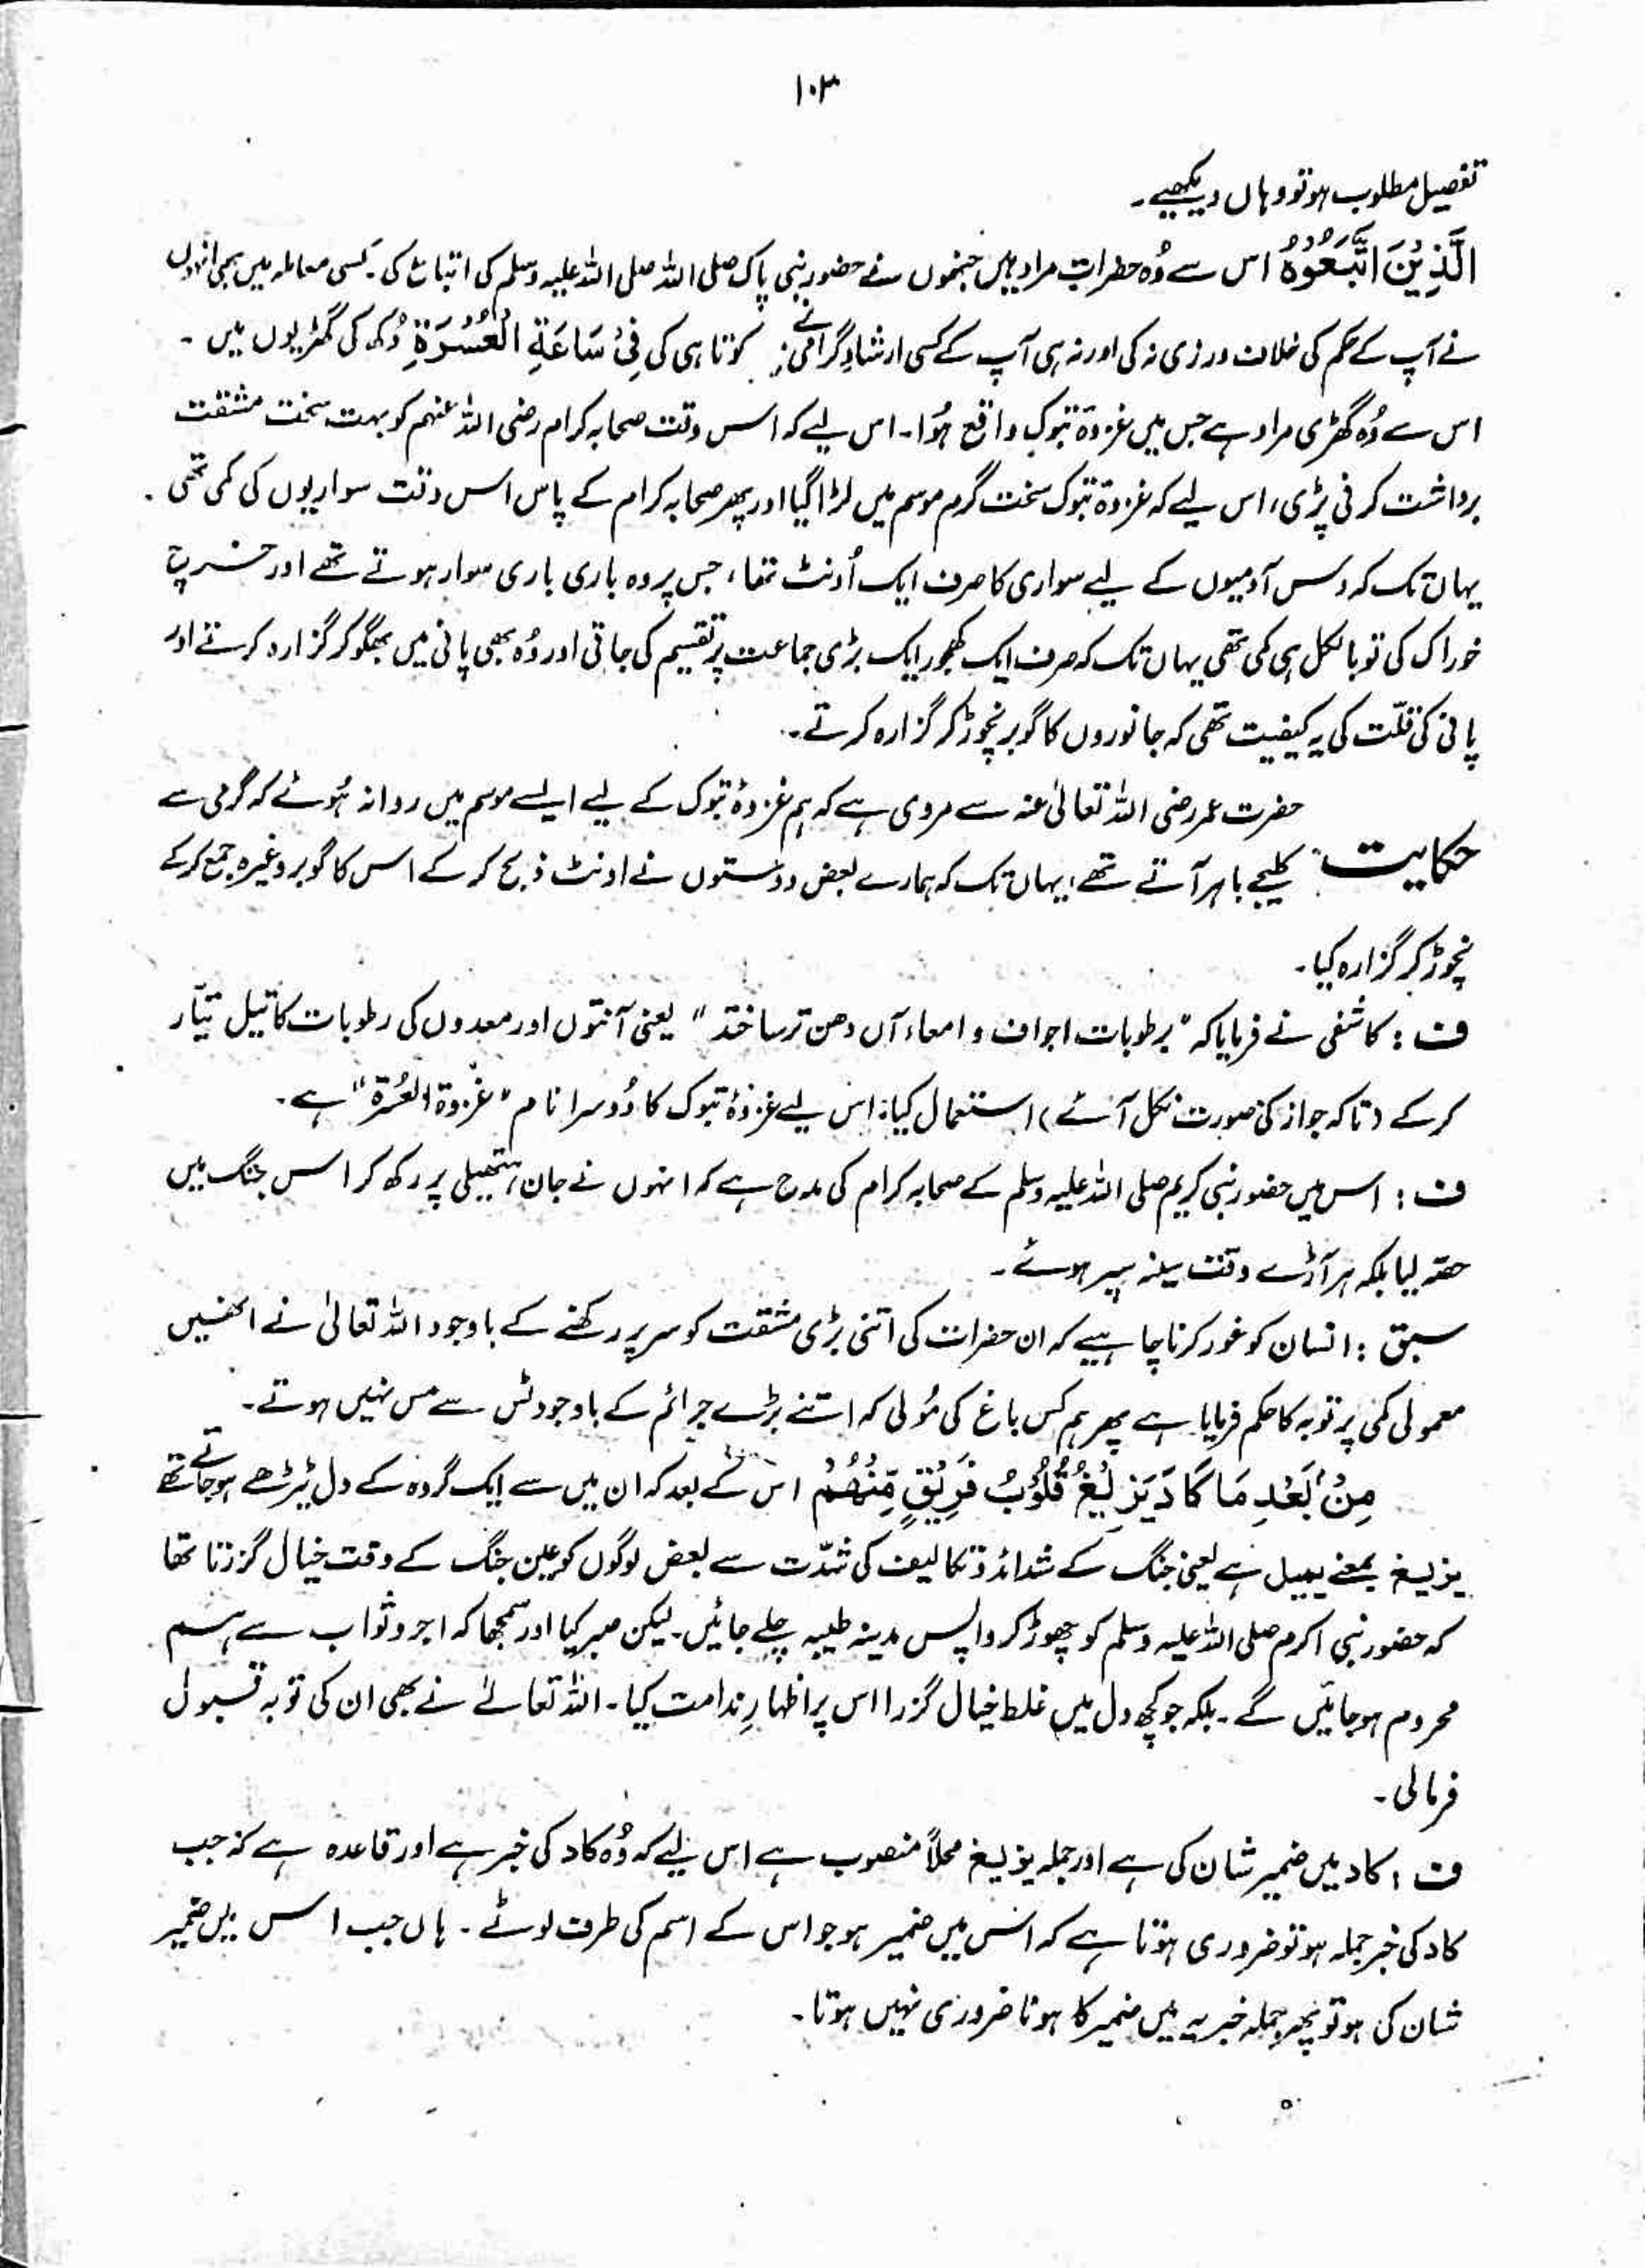 ۱۰۳
تفصیل مطلوب ہو تو وہاں دیکھیے۔
الَّذِيْنَ اتَّبَعُوْهُ اس سے وُہ حضرات مراد ہیں جنھوں نے حضور نبی پاک صلی اللہ صلی اللہ علیہ وسلم کی اتباع کی۔ کسی معاملہ میں بھی انہوں
نے آپ کے حکم کی خلاف ورزی نہ کی اور نہ ہی آپ کے کسی ارشادِ گرامی کوتاہی کی فِیْ سَاعَةِ الْعُسْرَةِ دُکھ کی گھڑیوں میں۔
اس سے وُہ گھڑی مراد ہے جس میں غزوۃ تبوک واقع ہُوا۔ اس لیے کہ اس وقت صحابہ کرام رضی اللہ عنہم کو بہت سخت مشقت
برداشت کرنی پڑی، اس لیے کہ غزوۃ تبوک سخت گرم موسم میں لڑا گیا اور پھر صحابہ کرام کے پاس اس وقت سواریوں کی کمی تھی۔
یہاں تک کہ دس آدمیوں کے لیے سواری کا صرف ایک اُونٹ تھا، جس پر وہ باری باری سوار ہوتے تھے اور خرچ
خوراک کی تو بالکل ہی کمی تھی یہاں تک کہ صرف ایک کھجور ایک بڑی جماعت پر تقسیم کی جاتی اور وُہ بھی پانی میں بھگو کر گزارہ کرتے اور
پانی کی قلّت کی یہ کیفیت تھی کہ جانوروں کا گوبر نچوڑ کر گزارہ کرتے۔
حضرت عمر رضی اللہ تعالیٰ عنہ سے مروی ہے کہ ہم غزوۂ تبوک کے لیے ایسے موسم میں روانہ ہُوئے کہ گرمی سے
حکایت کلیجے باہر آتے تھے؛ یہاں تک کہ ہمارے بعض دوستوں نے اونٹ ذبح کر کے اس کا گوبر وغیرہ جمع کر کے
نچوڑ کر گزارہ کیا۔
ف : کاشفی نے فرمایا کہ " برطوبات اجواف و امعاء آں دہن تر ساختند " یعنی آنتوں اور معدوں کی رطوبات کا تیل تیّار
کر کے (تاکہ جواز کی صورت نکل آئے) استعمال کیا؛ اس لیے غزوۂ تبوک کا دُوسرا نام "غزوۃ العُسْرۃ" ہے۔
ف : اس میں حضور نبی کریم صلی اللہ علیہ وسلم کے صحابہ کرام کی مدح ہے کہ انہوں نے جان ہتھیلی پر رکھ کر اس جنگ میں
حصّہ لیا بلکہ ہر آڑے وقت سینہ سپر ہوئے۔
سبق : انسان کو غور کرنا چاہیے کہ ان حضرات کی اتنی بڑی مشقت کو سر پر رکھنے کے باوجود اللہ تعالیٰ نے انھیں
معمولی کمی پر توبہ کا حکم فرمایا ہے پھر ہم کس باغ کی مُولی کہ اتنے بڑے جرائم کے باوجود ٹس سے مس نہیں ہوتے۔
مِنْۢ بَعْدِ مَا كَادَ يَزِيْغُ قُلُوْبُ فَرِيْقٍ مِّنْهُمْ اس کے بعد کہ ان میں سے ایک گروہ کے دل ٹیڑھے ہو جاتے تھے
یزیغ بمعنے یمیل ہے یعنی جنگ کے شدائد و تکالیف کی شدّت سے بعض لوگوں کو عین جنگ کے وقت خیال گزرتا تھا
کہ حضور نبی اکرم صلی اللہ علیہ وسلم کو چھوڑ کر واپس مدینہ طیبہ چلے جائیں۔ لیکن صبر کیا اور سمجھا کہ اجر و ثواب سے ہم
محروم ہو جائیں گے۔ بلکہ جو کچھ دل میں غلط خیال گزرا اس پر اظہارِ ندامت کیا۔ اللہ تعالےٰ نے بھی ان کی توبہ قبول
فرمالی۔
ف : کاد میں ضمیر شان کی ہے اور جملہ یزیغ محلاً منصوب ہے اس لیے کہ وُہ کاد کی خبر ہے اور قاعدہ ہے کہ جب
کاد کی خبر جملہ ہو تو ضروری ہوتا ہے کہ اس میں ضمیر ہو جو اس کے اسم کی طرف لوٹے۔ ہاں جب اس میں ضمیر
شان کی ہو تو پھر جملہ خبریہ میں ضمیر کا ہونا ضروری نہیں ہوتا۔